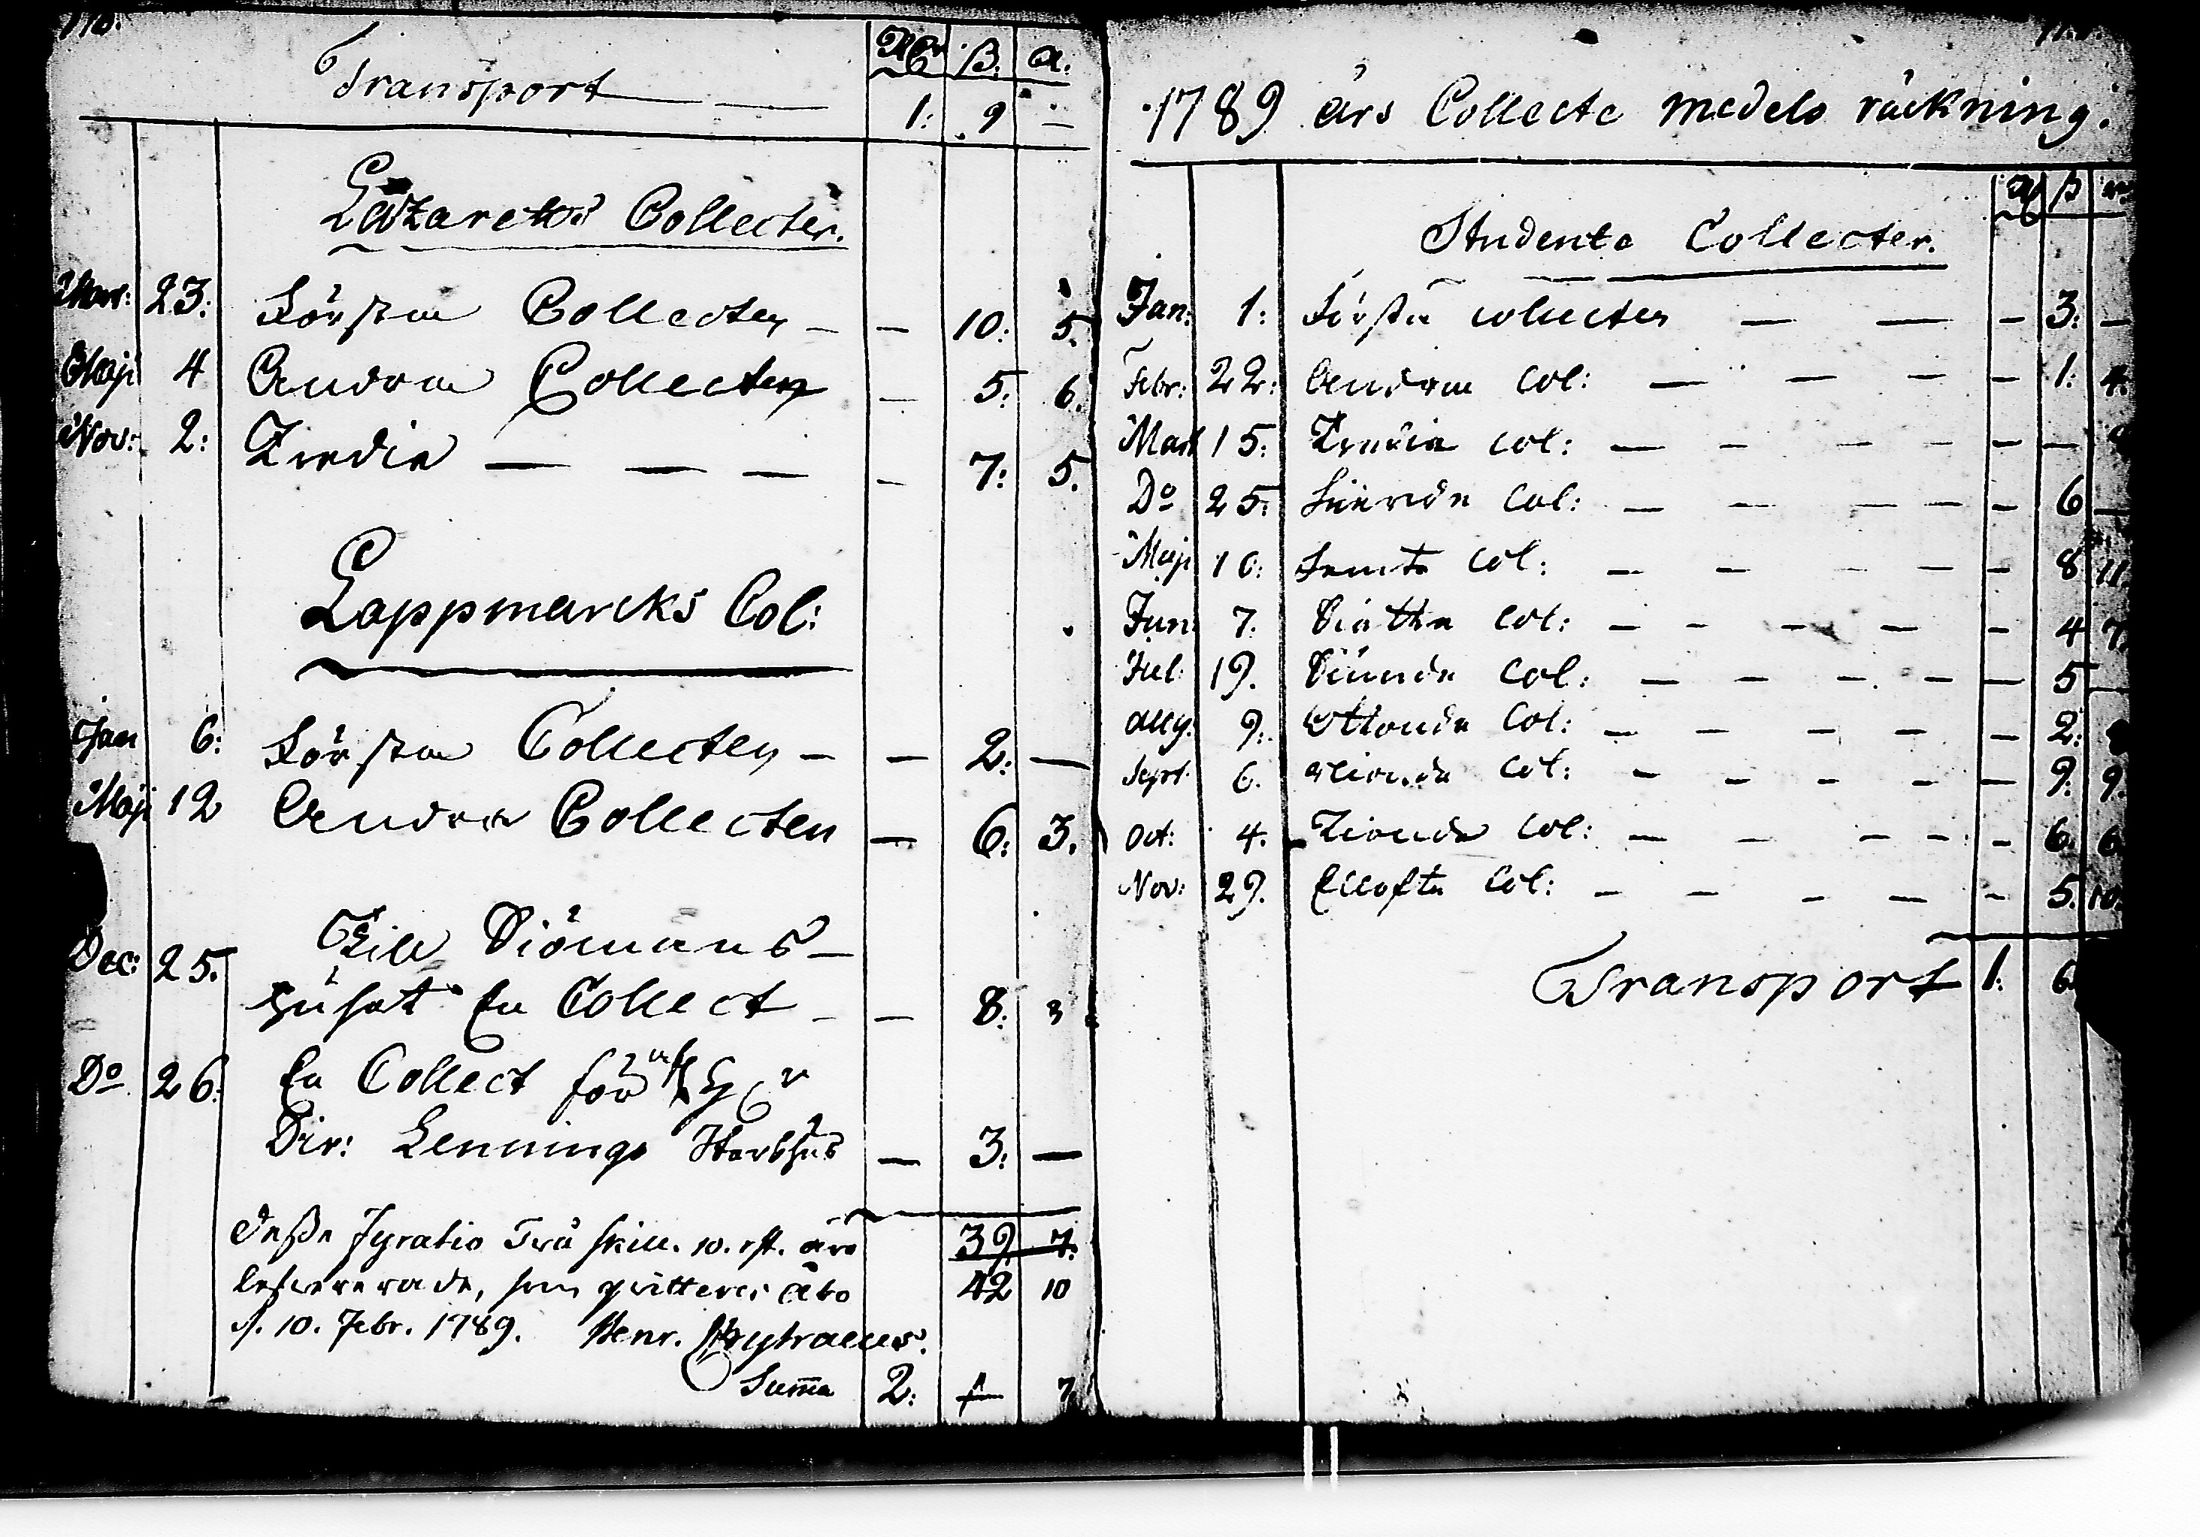 Transport — — 1: 9 —
ß:
Lazaretts Collecter.
Mar: 23: Första Collecten — — 10: 5.
Maji 4 Andra Collecten — 5: 6.
Nov: 2: Tredie — — — — 7: 5.
Lappmarcks Col:
Jan 6: Första Collecten — — 2: —
Maji 12 Andra Collecten — 6: 3.
Dec: 25. Till Siömans-
huset En Collect — — 8: 3
Do 26: En Collect för
Dir: Lennings Sterbhus — 3: —
Deße Fyratio Två skill. 10. rst. äro 39 7.
levererade, som qvitteras Åbo 42 10
d. 10. Febr. 1789. Henr.
Summa 2: 7.
1789 års Collecte medels räckning.
ß
Studente Collecter.
Jan: 1: Första collecten — — — 3: —
Febr: 22: Andra Col: — — — — 1: 4.
Mart 15: Tredie Col: — — — — —
Do 25: Fierde Col: — — — — — 6 —
Maji 10: Femte Col: — — — — — 8 11.
Jun: 7. Siette Col: — — — — — 4 7.
Jul: 19. Siunde Col: — — — — — 5 —
Aug: 9. Ottonde Col: — — — — — 2:
Sept. 6. Nionde Col: — — — — — 9: 9.
Oct: 4. Tionde Col: — — — — — 6. 6
Nov: 29. Ellofte Col: — — — — — 5. 10.
Transport 1: 6.